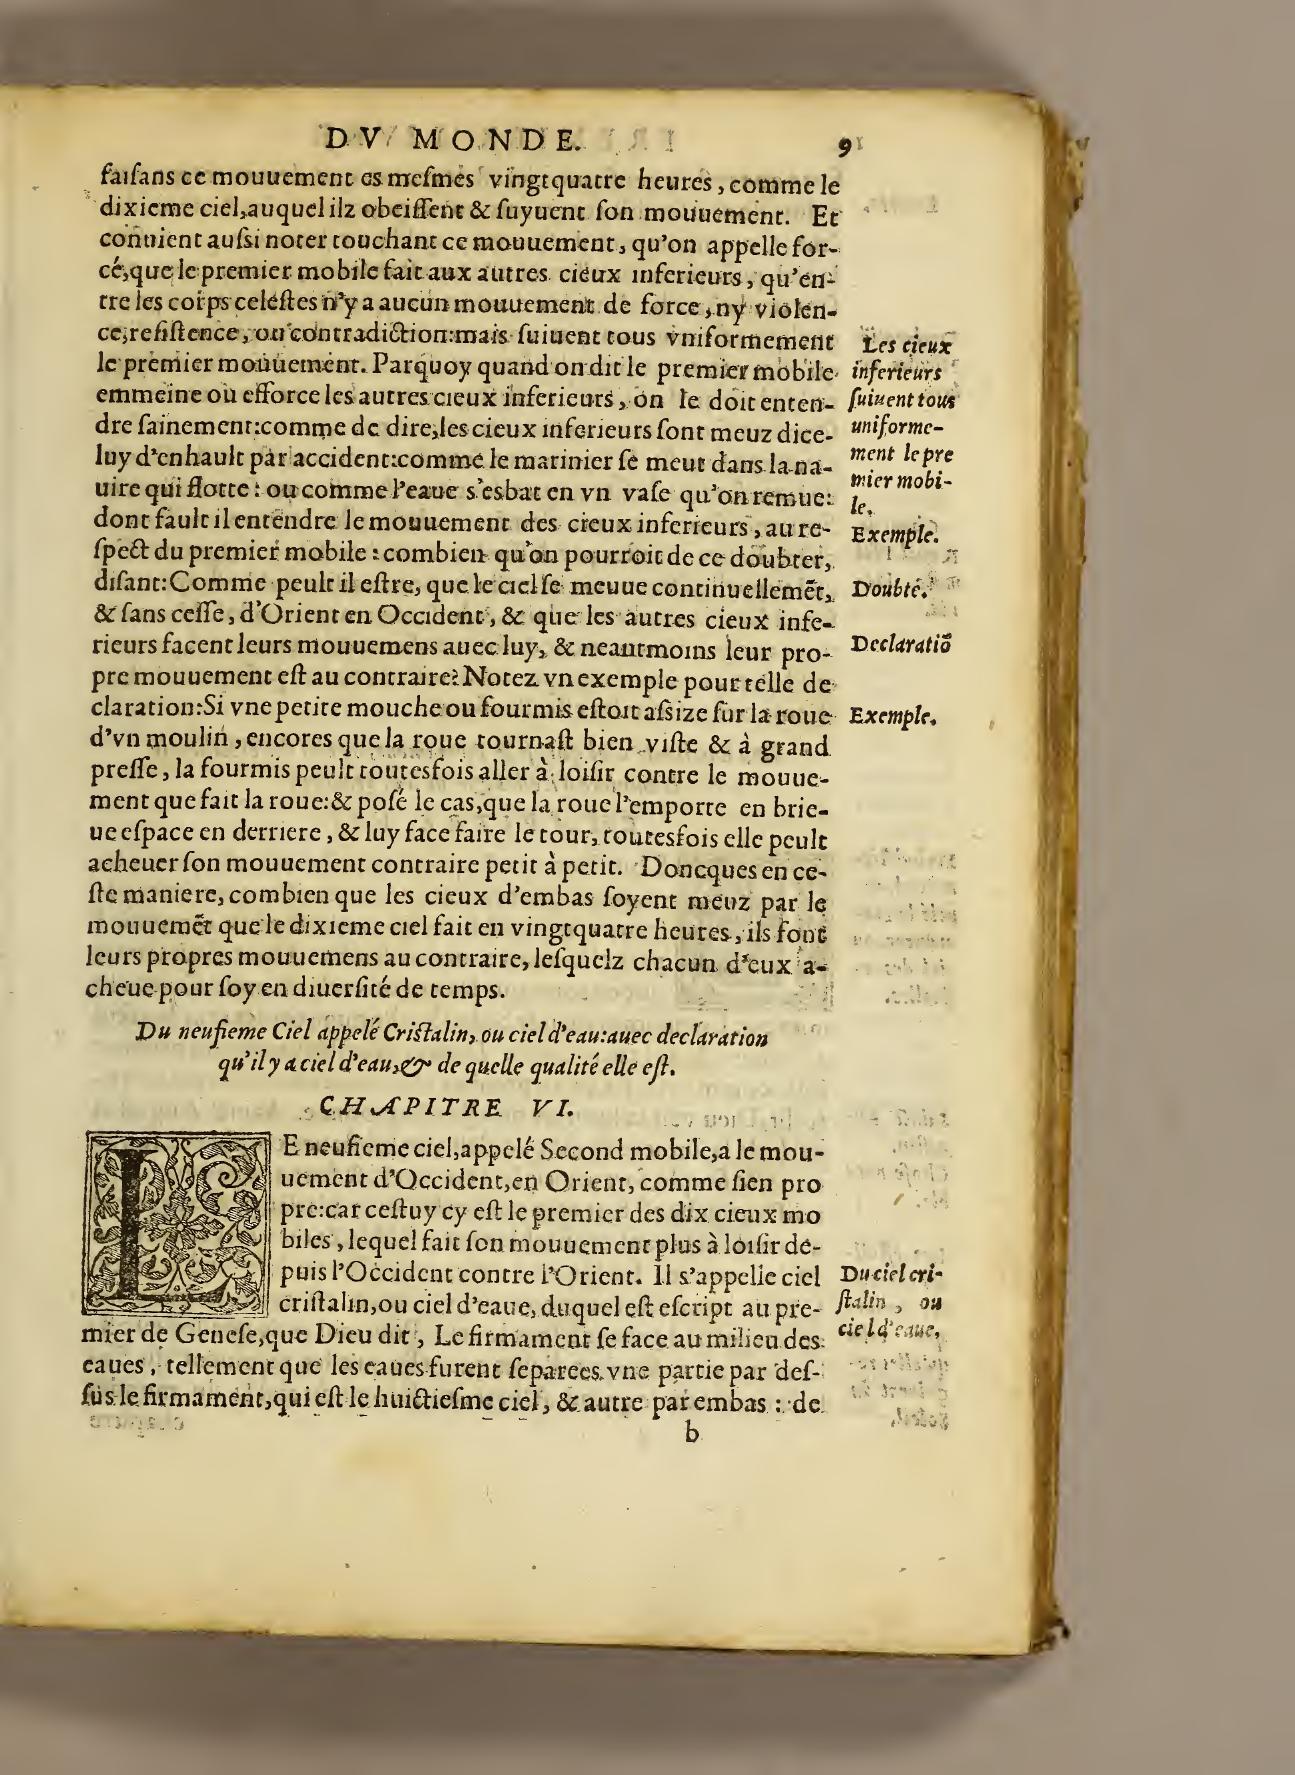 DV MONDE. 9
faiſans ce mouuement es meſmes vingtquatre heures, comme le
dixieme ciel, auquel ilz obeiſſent & ſuyuent ſon mouuement. Et
conuient auſsi noter touchant ce mouuement, qu'on appelle for-
cé, que le premier mobile fait aux autres cieux inferieurs, qu'en-
tre les corps celeſtes n'y a aucun mouuement de force, ny violen-
ce, reſiſtence, ou contradiction: mais ſuiuent tous vniformement
le premier mouuement. Parquoy quand on dit le premier mobile
emmeine ou efforce les autres cieux inferieurs, on le doit enten-
dre ſainement: comme de dire, les cieux inferieurs ſont meuz dice-
luy d'enhault par accident: comme le marinier ſe meut dans la na-
uire qui flotte: ou comme l'eaue s'esbat en vn vaſe qu'on remue:
dont fault il entendre le mouuement des cieux inferieurs, au re-
ſpect du premier mobile: combien qu'on pourroit de ce doubter,
diſant: Comme peult il eſtre, que le ciel ſe meuue continuellemēt,
& ſans ceſſe, d'Orient en Occident, & que les autres cieux infe-
rieurs facent leurs mouuemens auec luy, & neantmoins leur pro-
pre mouuement eſt au contraire? Notez vn exemple pour telle de
claration: Si vne petite mouche ou fourmis eſtoit aſsize ſur la roue
d'vn moulin, encores que la roue tournaſt bien viſte & à grand
preſſe, la fourmis peult toutesfois aller à loiſir contre le mouue-
ment que fait la roue: & poſé le cas, que la roue l'emporte en brie-
ue eſpace en derriere, & luy face faire le tour, toutesfois elle peult
acheuer ſon mouuement contraire petit à petit. Doncques en ce-
ſte maniere, combien que les cieux d'embas ſoyent meuz par le
mouuemēt que le dixieme ciel fait en vingtquatre heures, ils font
leurs propres mouuemens au contraire, leſquelz chacun d'eux a-
cheue pour ſoy en diuerſité de temps.
Les cieux
inferieurs
ſuiuent tous
uniforme-
ment le pre
mier mobi-
le.
Exemple.
Doubté.
Declaratiō
Exemple.
Du neufieme Ciel appelé Criſtalin, ou ciel d'eau: auec declaration
qu'il y a ciel d'eau, & de quelle qualité elle eſt.
CHAPITRE VI.
LE neufieme ciel, appelé Second mobile, a le mou-
uement d'Occident, en Orient, comme ſien pro
pre: car ceſtuy cy eſt le premier des dix cieux mo
biles, lequel fait ſon mouuement plus à loiſir de-
puis l'Occident contre l'Orient. Il s'appelle ciel
criſtalin, ou ciel d'eaue, duquel eſt eſcript au pre-
mier de Geneſe, que Dieu dit, Le firmament ſe face au milieu des
eaues, tellement que les eaues furent ſeparees vne partie par deſ-
ſus le firmament, qui eſt le huictieſme ciel, & autre par embas: de
Du ciel cri-
ſtalin, ou
ciel d'eaue.
b